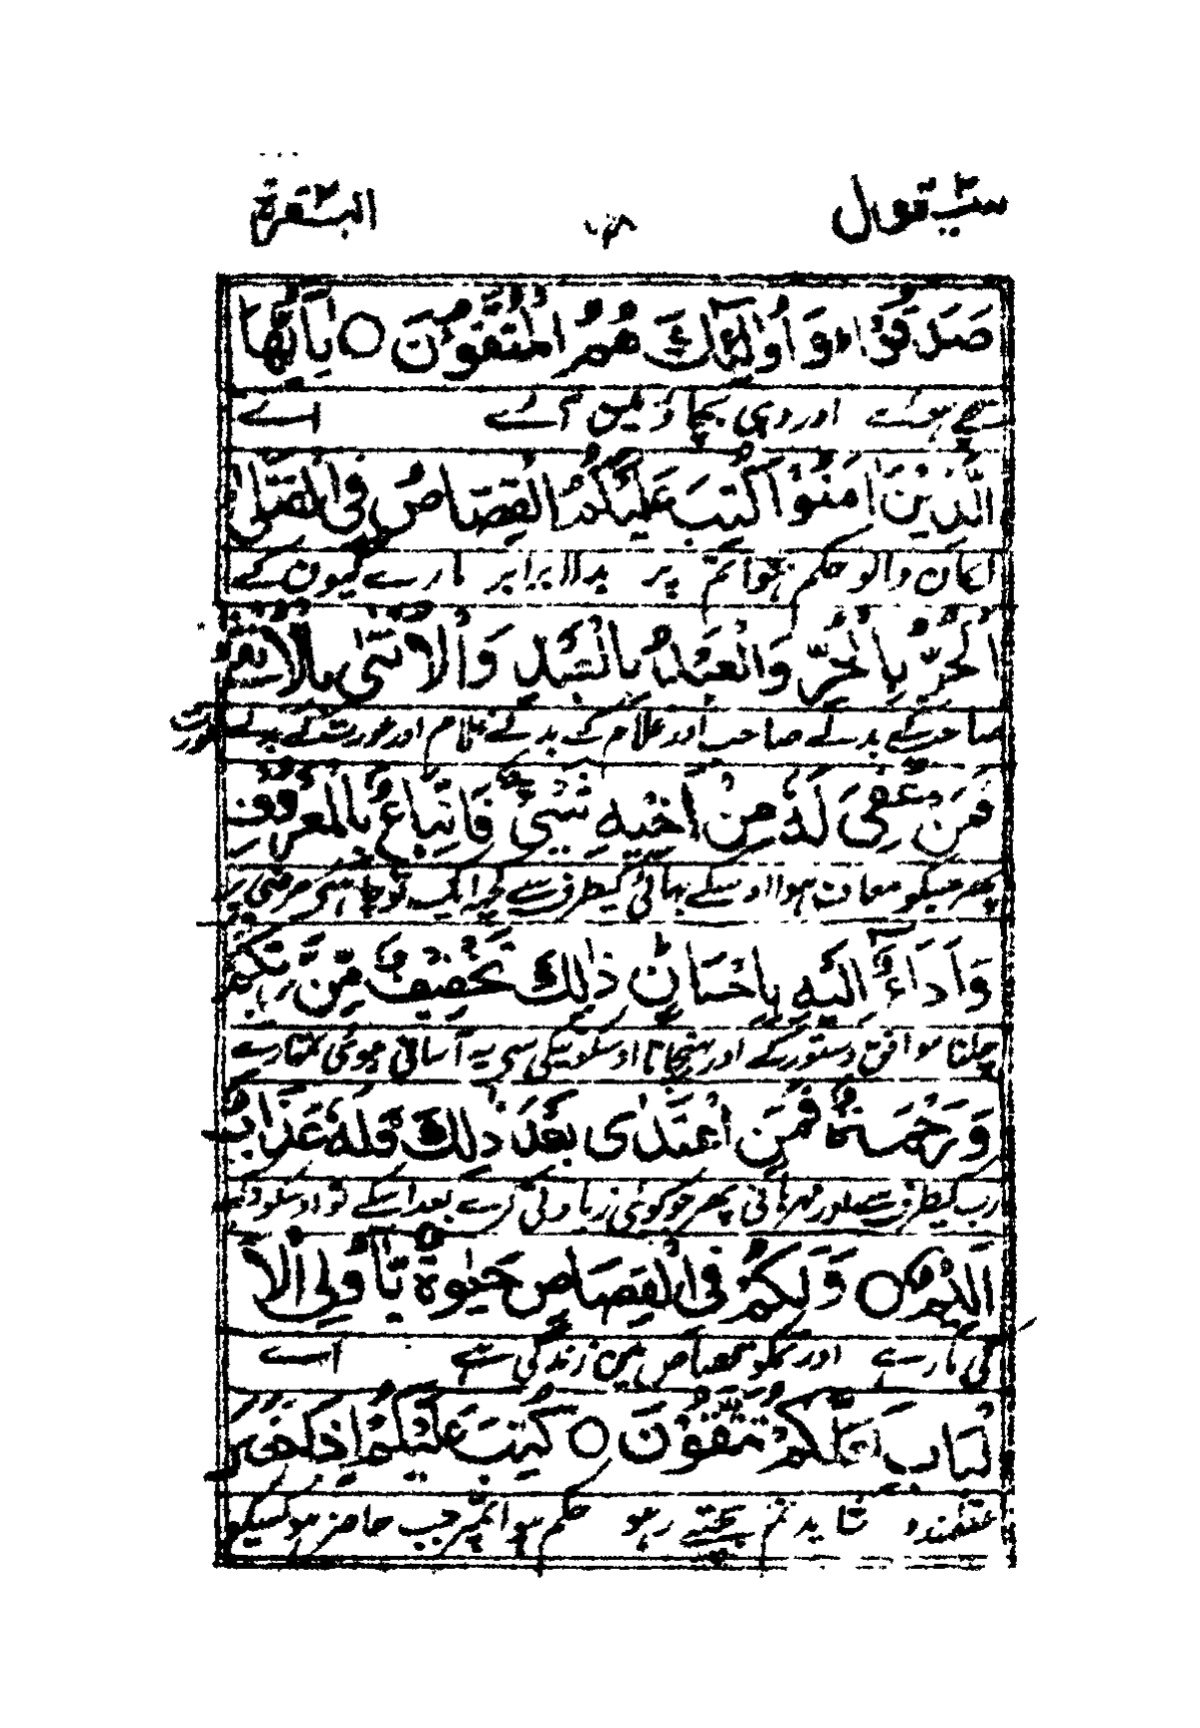 سيقول البقرة
صَدَقُوْا وَاُولٰٓئِكَ هُمُ الْمُتَّقُوْنَ ○ يٰاَيُّهَا
سچے ہوئے اور وہی بچاؤ میں آئے اے
الَّذِيْنَ اٰمَنُوْا كُتِبَ عَلَيْكُمُ الْقِصَاصُ فِى الْقَتْلٰى
ایمان والو حکم ہوا تم پر بدلا برابر مارے گیون کے
اَلْحُرُّ بِالْحُرِّ وَالْعَبْدُ بِالْعَبْدِ وَالْاُنْثٰى بِالْاُنْثٰى
صاحب کے بدلے صاحب اور غلام کے بدلے غلام اور عورت کے بدلے عورت
فَمَنْ عُفِىَ لَهٗ مِنْ اَخِيْهِ شَيْئٌ فَاتِّبَاعٌ بِالْمَعْرُوْفِ
پھر جسکو معاف ہوا اوسکے بہائی کیطرف سے کچہ ایک تو چاہئے مرضی پر
وَاَدَآءٌ اِلَيْهِ بِاِحْسَانٍ ذٰلِكَ تَخْفِيْفٌ مِّنْ رَّبِّكُمْ
چلنا موافق دستور کے اور پہنچانا اوسکو نیکی سے یہ آسانی ہوئی تمھارے
وَرَحْمَةٌ فَمَنِ اعْتَدٰى بَعْدَ ذٰلِكَ فَلَهٗ عَذَابٌ
رب کیطرف سے اور مہربانی پھر جو کوئی زیادتی کرے بعد اسکے تو اوسکو
اَلِيْمٌ ○ وَلَكُمْ فِى الْقِصَاصِ حَيٰوةٌ يّٰاُولِى الْاَ
کی مار ہے اور تمکو قصاص مین زندگی ہے اے
لْبَابِ لَعَلَّكُمْ تَتَّقُوْنَ ○ كُتِبَ عَلَيْكُمْ اِذَا حَضَرَ
عقلمندو شاید تم بچتے رہو حکم ہوا تمپر جب حاضر ہو کسیکو